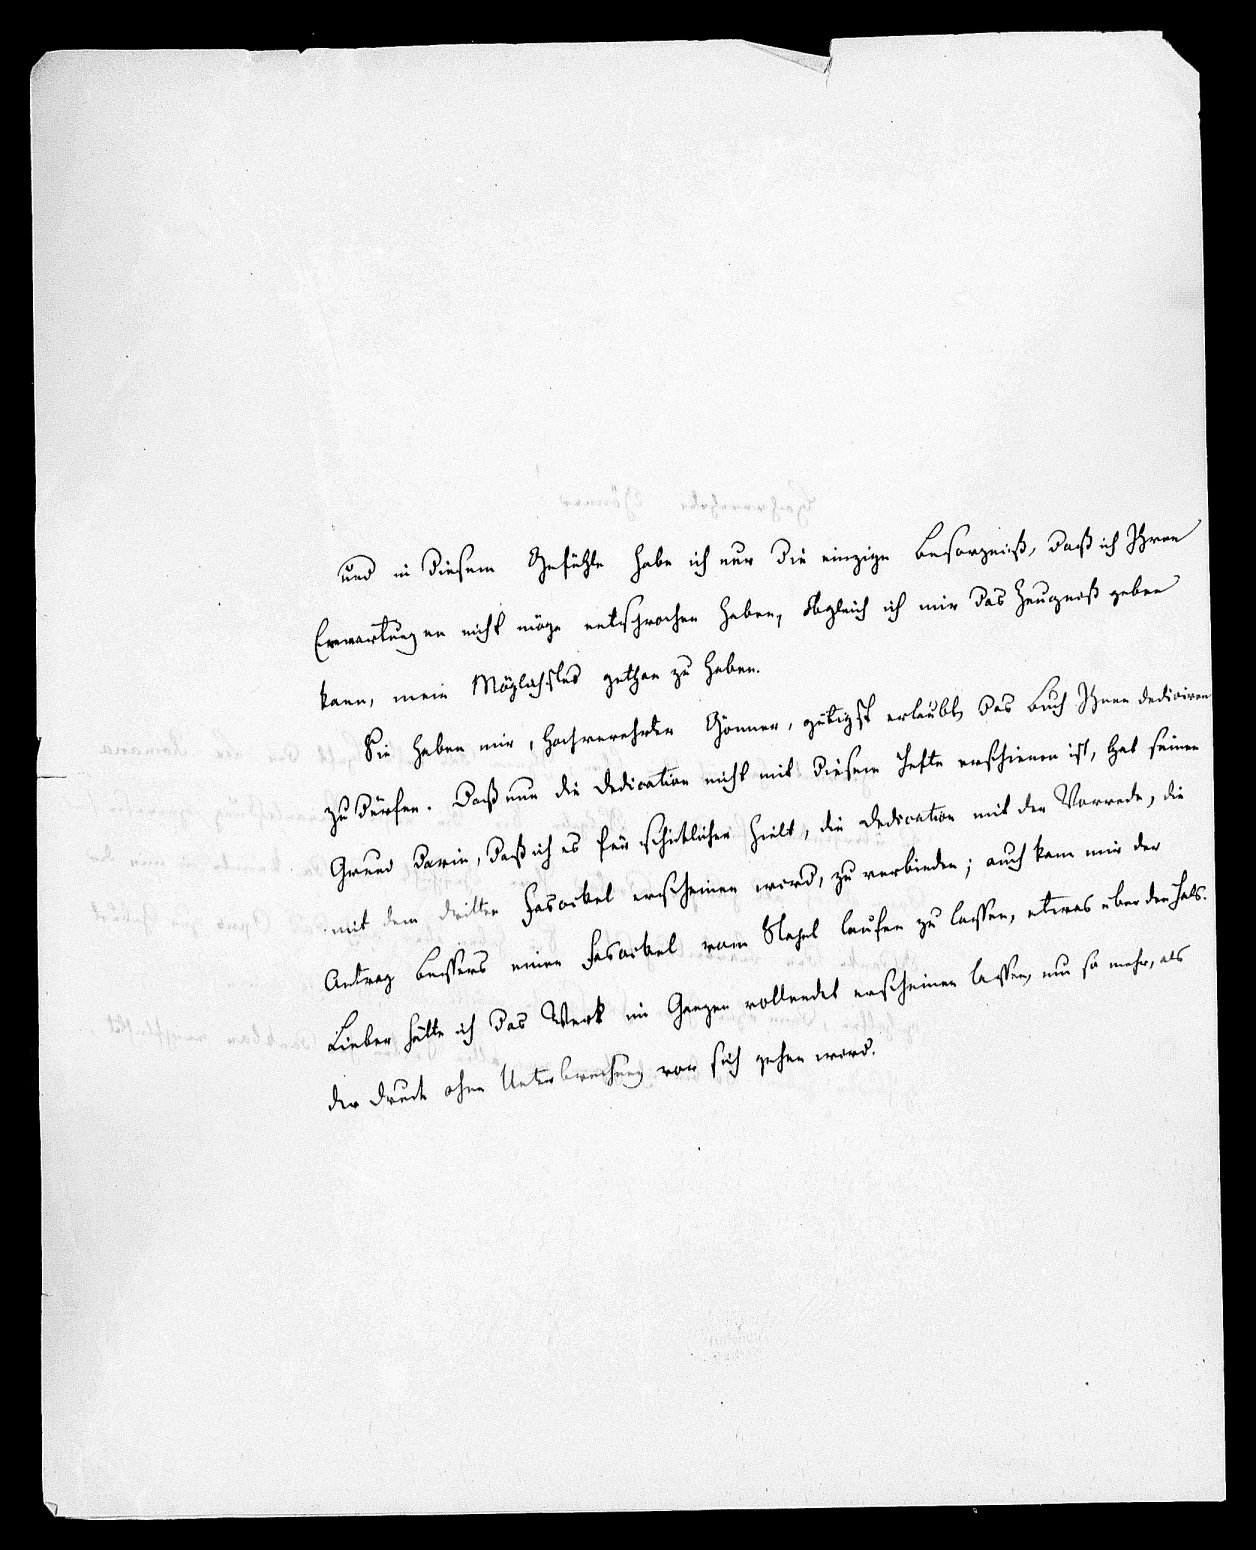 und in diesem Gefühle habe ich nur die einzige Besorgniß, daß ich Ihren
Erwartungen nicht möge entsprochen haben, obgleich ich mir das Zeugniß geben
kann, mein Möglichstes gethan zu haben.
Sie haben mir, hochverehrter Gönner, gütigst erlaubt, das Buch Ihnen dediciren
zu dürfen. Daß nun die Dedication nicht mit diesem Hefte erschienen ist, hat seinen
Grund darin, daß ich es für schicklicher hielt, die Dedication mit der Vorrede, die
mit dem dritten Fascikel erscheinen wird, zu verbinden; auch kam mir der
Antrag Bessers einen Fascikel vom Stapel laufen zu lassen, etwas über den Hals.
Lieber hätte ich das Werk im Ganzen vollendet erscheinen lassen, um so mehr, als
der Druck ohne Unterbrechung vor sich gehen wird.